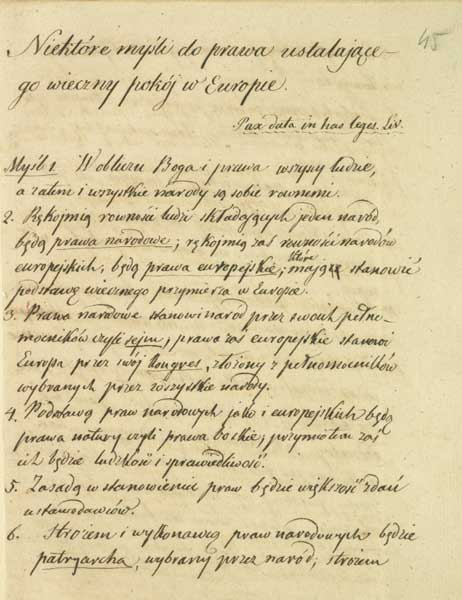 45
Niektóre myśli do prawa ustalające-
go wieczny pokój w Europie.
Pax data in has leges. Liv.
Myśl 1. W obliczu Boga i prawa wszyscy ludzie,
a zatem i wszystkie narody są sobie równemi.
2. Rękojmią równości ludzi składających jeden naród,
będą prawa narodowe; rękojmią zaś równości narodów
europejskich, będą prawa europejskie; które mają stanowić
podstawę wiecznego przymierza w Europie.
3. Prawa narodowe stanowi naród przez swoich pełno-
mocników czyli sejm; prawa zaś europejskie stanowi
Europa przez swój Kongres, złożony z pełnomocników
wybranych przez wszystkie narody.
4. Podstawą praw narodowych jako i europejskich będą
prawa natury czyli prawa boskie; przymiotem zaś
ich będzie ludzkość i sprawiedliwość.
5. Zasadą w stanowieniu praw będzie większość zdań
ustawodawców.
6. Stróżem i wykonawcą praw narodowych będzie
patryarcha, wybrany przez naród; stróżem